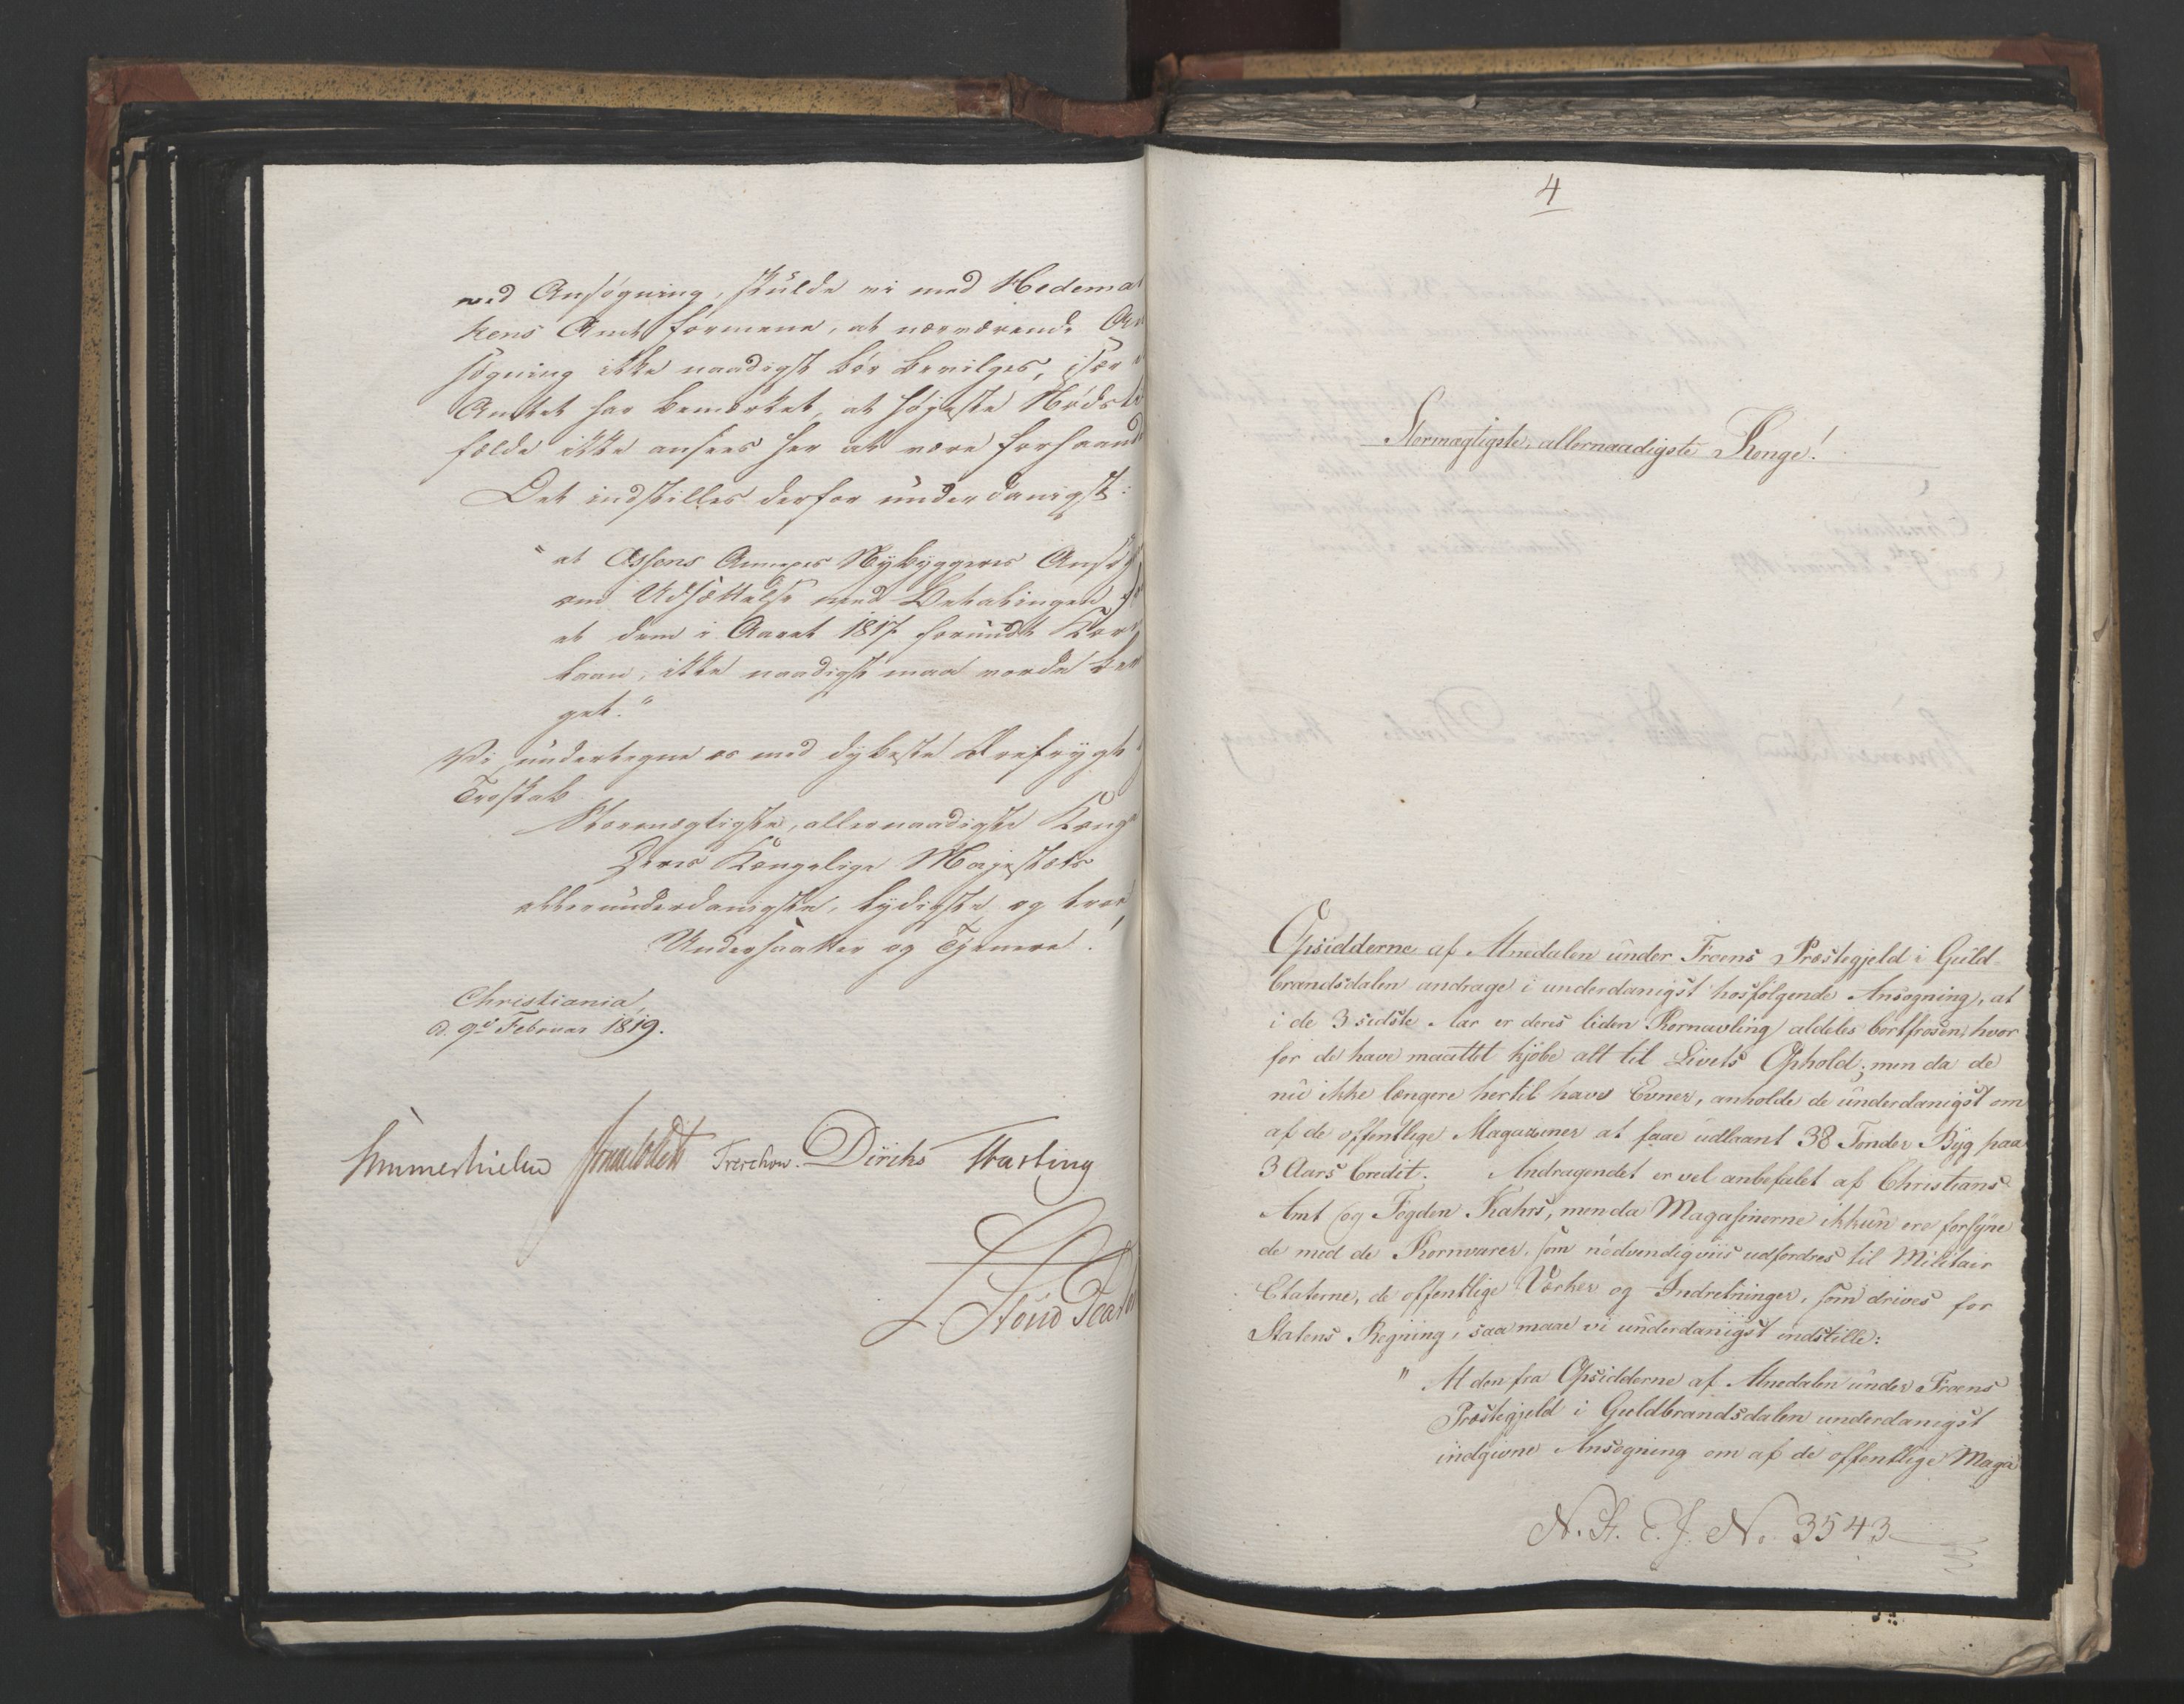 ved Ansøgning, skulde vi med Hedemar
kens Amt formene, at nærværende An
søgning ikke naadigst bør bevilges, især
Amtet har bemærket, at høieste Nødsti
fælde ikke ansees her at være forhaand
Det indstilles derfor underdanigst:
"at Assens Annexes Nybyggeres Ansøg
om Udsættelse med Betalingen
et dem i Aaret 1817 forundt Korn
laan, ikke naadigst maa vorde bevil
get."
Vi undertegne os med dybeste Ærefrygt
Troskab
Stormægtigste, allernaadigste Konge
Deres Kongelige Majestæts
allerunderdanigste, lydigste og troe
Undersaatter og Tjenere!
Christiania,
d. 9d Februar 1819.
Sommerhielm Treschow. Diriks Hasting
4
Stormægtigste, allernaadigste Konge!
Opsidderne af Alnedalen under Froens Præstegjeld i Guld
brandsdalen andrage i underdanigst hosfølgende Ansøgning, at
i de 3 sidste Aar er deres liden Kornavling aldeles bortfrosen, hvor
for de have maattet kjøbe alt til Livets Ophold; men da de
nu ikke længere hertil have Evner, anholde de underdanigst om
af de offentlige Magaziner at faae udlaant 38 Tønder Byg paa
3 Aars Credit. Andragendet er vel anbefalet af Christians
Amt og Fogden Kahrs, men da Magasinerne ikkun ere forsyne
de med de Kornvarer, som nødvendigviis udfordres til Militair
Etaterne, de offentlige Værker og Indretninger, som drives for
Statens Regning, saa maae vi underdanigst indstille:
"At den fra Opsidderne af Alnedalen under Froens
Præstegjeld i Guldbrandsdalen underdanigst
indgivne Ansøgning om af de offentlige Maga
N. St. E. J. No. 3543